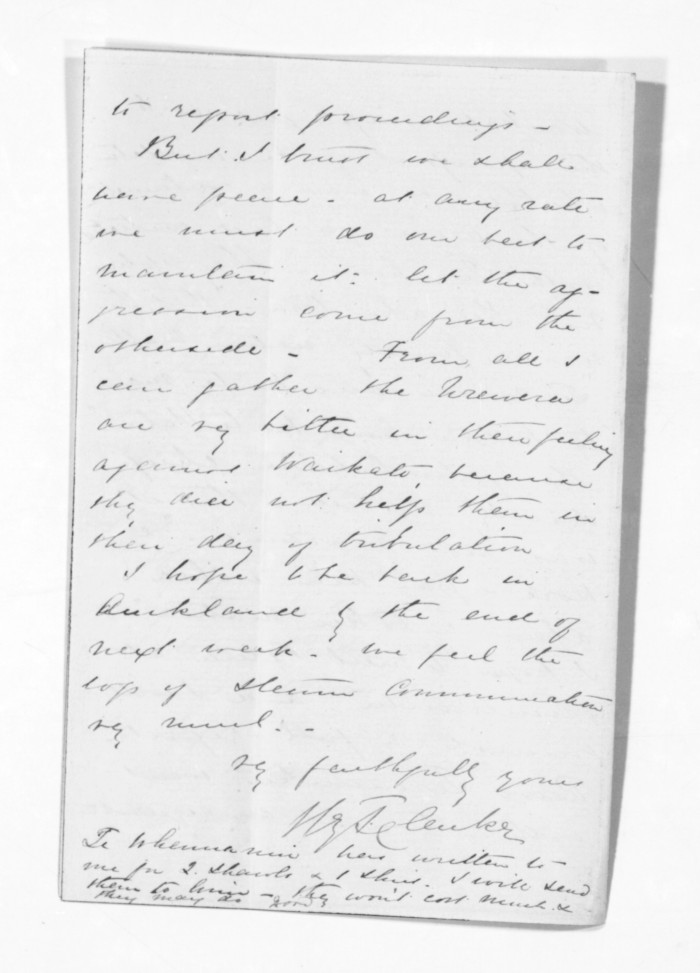 to report proceedings -
But I trust we shall
have peace - at any rate
we must do our best to
maintain it: let the ag-
gression come from the
otherside - From all I
can gather the Urewera
are vy bitter in their feeling
against Waikato, because
they did not help them in
their day of tribulation
I hope to be back in
Auckland by the end of
next week - we feel the
loss of steam communication
vy much. -
vy faithfully yours
Hy T. Clarke
Te has written to
me for 2 shawls & 1 shirt. I will send
them to him - they won't cost much &
they may do good